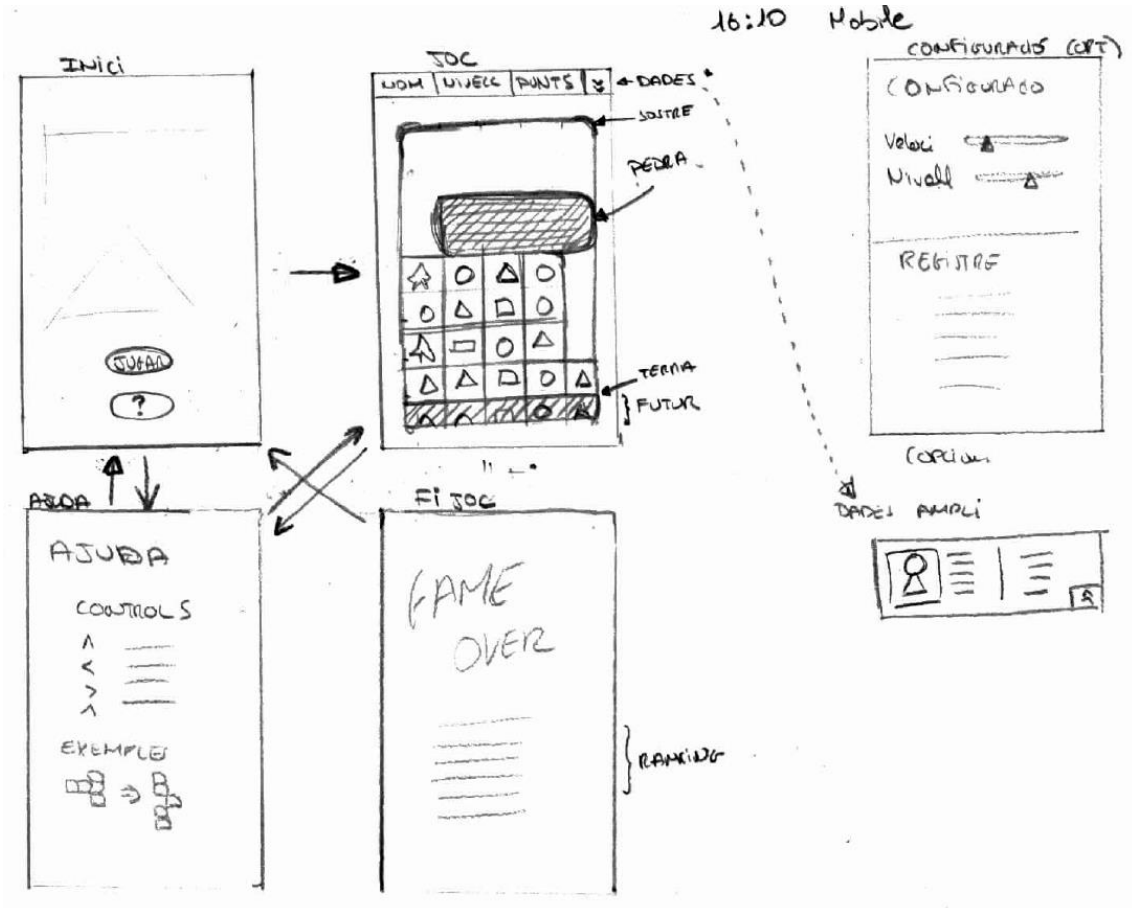 16:10 Mobile
INICI
JUGAR
?
JOC
NOM NIVELL PUNTS
DADES
SOSTRE
PEDRA
TERRA
FUTUR
CONFIGURACIÓ (OPT)
CONFIGURACIO
Veloci
Nivell
REGISTRE
DADES AMPLI
AJUDA
AJUDA
CONTROLS
EXEMPLES
FI JOC
GAME
OVER
RANKING